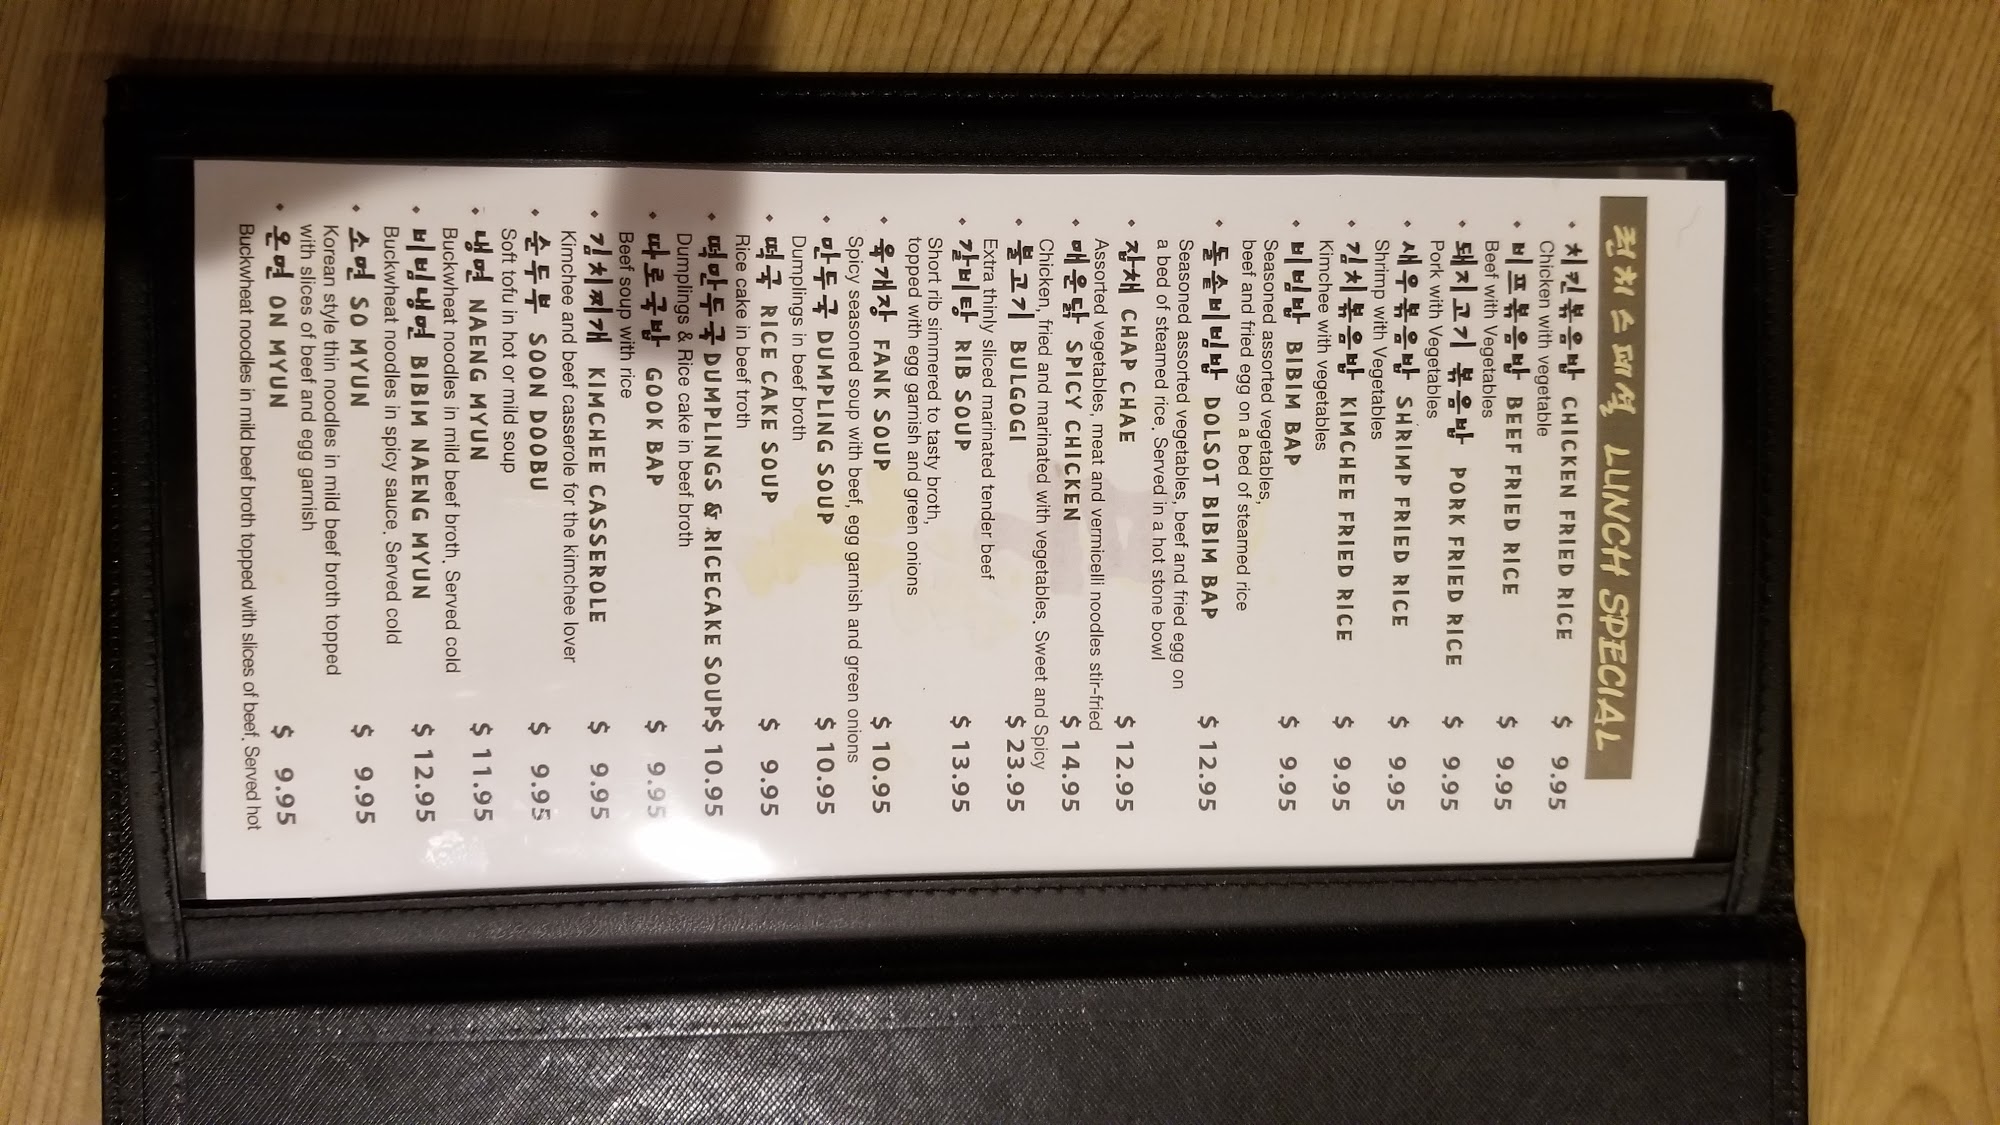 런치스페셜 LUNCH SPECIAL
• 치킨볶음밥 CHICKEN FRIED RICE $ 9.95
Chicken with vegetable
• 비프볶음밥 BEEF FRIED RICE $ 9.95
Beef with Vegetables
• 돼지고기 볶음밥 PORK FRIED RICE $ 9.95
Pork with Vegetables
• 새우볶음밥 SHRIMP FRIED RICE $ 9.95
Shrimp with Vegetables
• 김치볶음밥 KIMCHEE FRIED RICE $ 9.95
Kimchee with vegetables
• 비빔밥 BIBIM BAP $ 9.95
Seasoned assorted vegetables,
beef and fried egg on a bed of steamed rice
• 돌솥비빔밥 DOLSOT BIBIM BAP $ 12.95
Seasoned assorted vegetables, beef and fried egg on
a bed of steamed rice. Served in a hot stone bowl
• 잡채 CHAP CHAE $ 12.95
Assorted vegetables, meat and vermicelli noodles stir-fried
• 매운닭 SPICY CHICKEN $ 14.95
Chicken, fried and marinated with vegetables. Sweet and Spicy
• 불고기 BULGOGI $ 23.95
Extra thinly sliced marinated tender beef
• 갈비탕 RIB SOUP $ 13.95
Short rib simmered to tasty broth,
topped with egg garnish and green onions
• 육개장 FANK SOUP $ 10.95
Spicy seasoned soup with beef, egg garnish and green onions
• 만두국 DUMPLING SOUP $ 10.95
Dumplings in beef broth
• 떡국 RICE CAKE SOUP $ 9.95
Rice cake in beef froth
• 떡만두국 DUMPLINGS & RICECAKE SOUP $ 10.95
Dumplings & Rice cake in beef broth
• 따로국밥 GOOK BAP $ 9.95
Beef soup with rice
• 김치찌개 KIMCHEE CASSEROLE $ 9.95
Kimchee and beef casserole for the kimchee lover
• 순두부 SOON DOOBU $ 9.95
Soft tofu in hot or mild soup
• 냉면 NAENG MYUN $ 11.95
Buckwheat noodles in mild beef broth. Served cold
• 비빔냉면 BIBIM NAENG MYUN $ 12.95
Buckwheat noodles in spicy sauce. Served cold
• 소면 SO MYUN $ 9.95
Korean style thin noodles in mild beef broth topped
with slices of beef and egg garnish
• 온면 ON MYUN $ 9.95
Buckwheat noodles in mild beef broth topped with slices of beef. Served hot